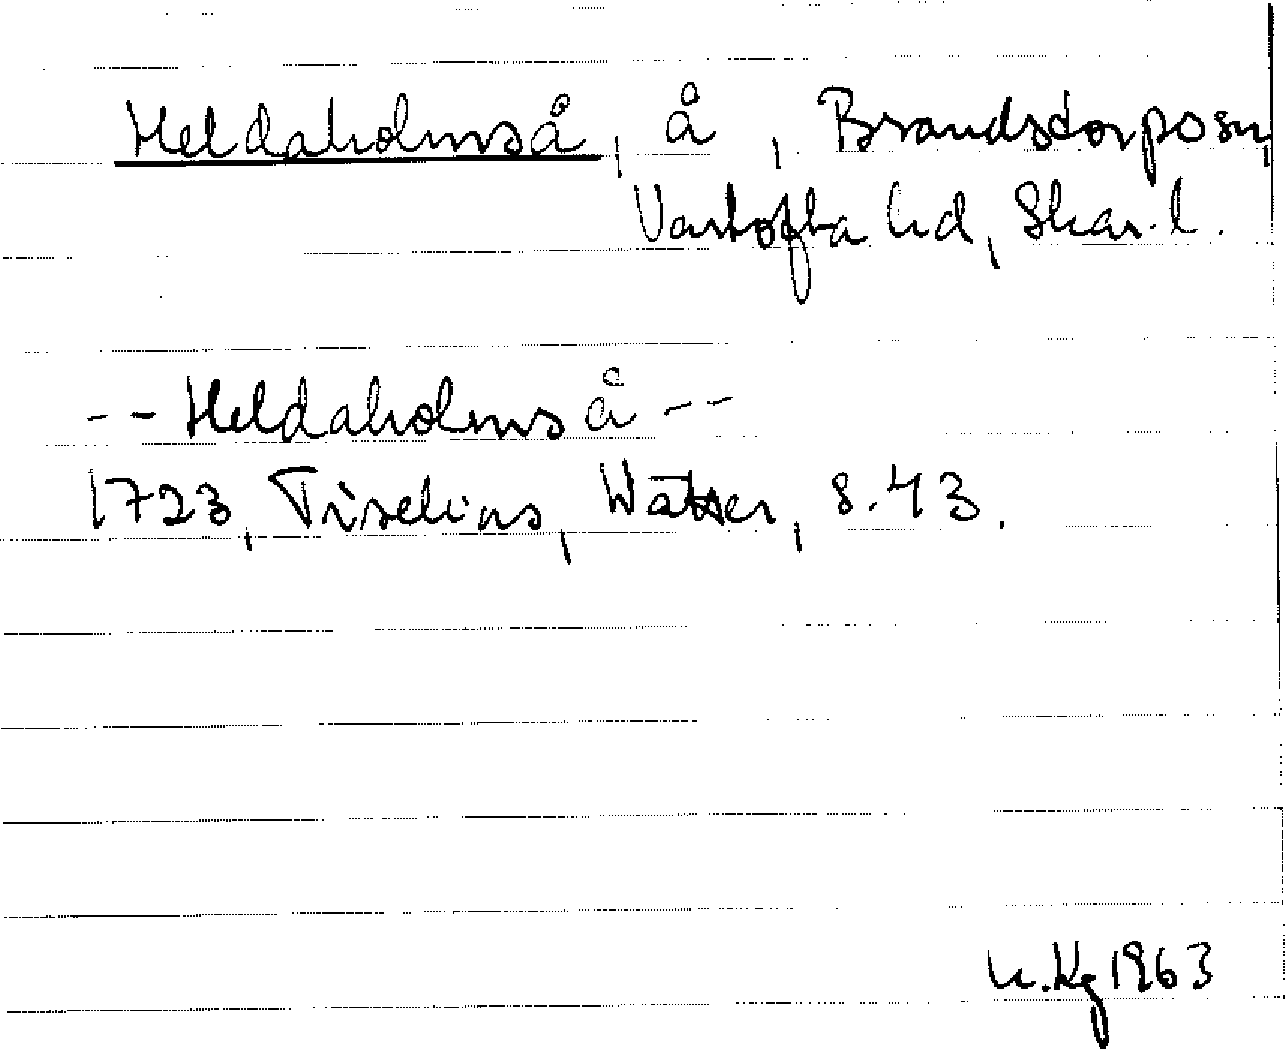 Heldaholmså, å, Brandstorps sn,
Vartofta hd, Skar. l.
-- Heldaholms å --
1723, Tiselius, Wätter, s. 43.
H. Kg 1963